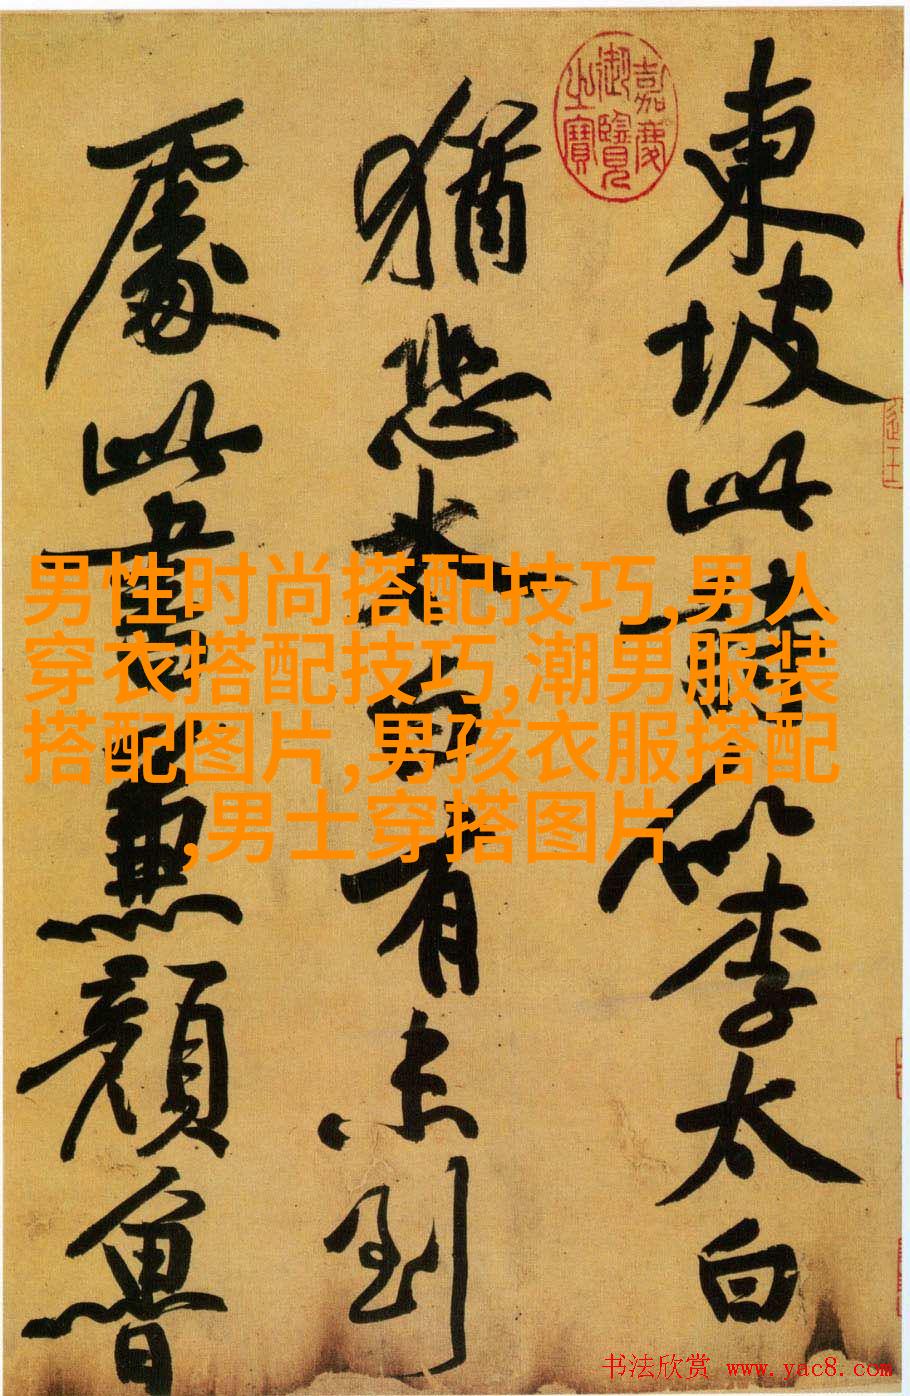 東坡此詩似李太白
猶恐太白有未到
處此書兼顏魯
嘉慶
御覽
之寶
男性时尚搭配技巧,男人
穿衣搭配技巧,潮男服装
搭配图片,男孩衣服搭配
,男士穿搭图片
书法欣赏 www.yac8.com